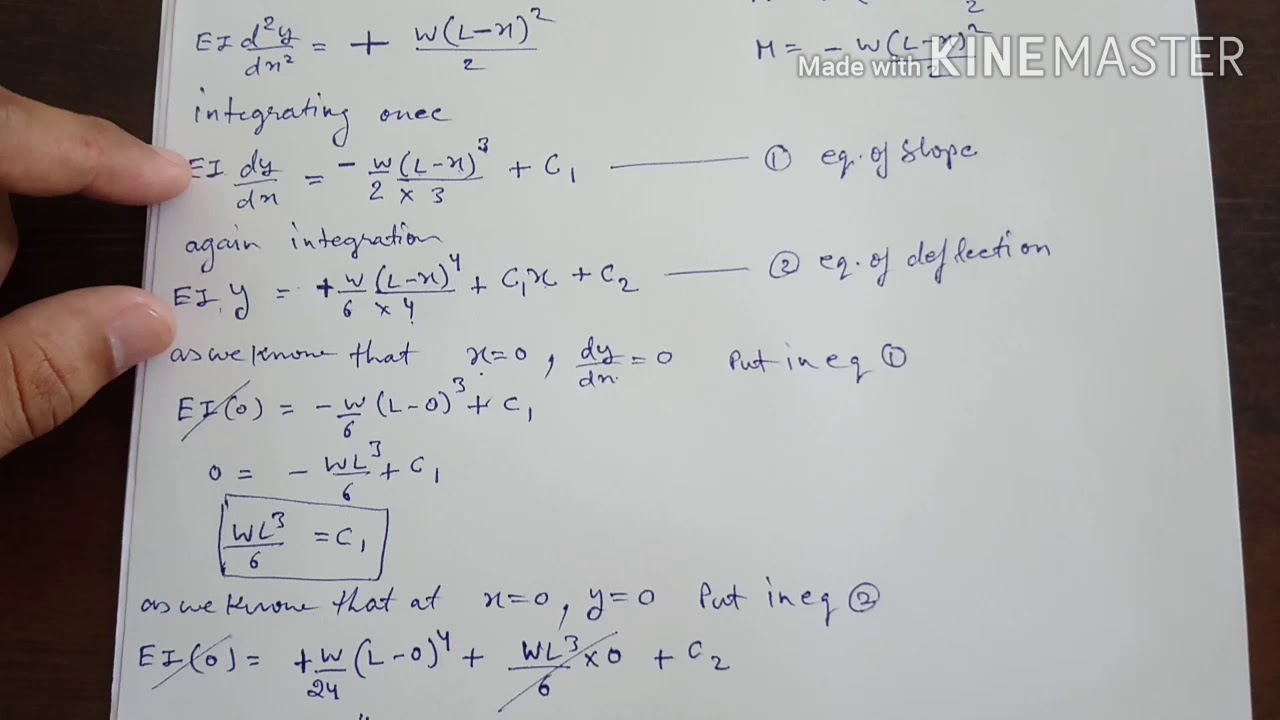 2
EI d²y/dx² = + W(L-x)²/2
M = - W(L-x)²/2
Made with KINEMASTER
integrating once
EI dy/dx = - W/2 (L-x)³/×3 + C₁ —— ① eq. of slope
again integration
EI.y = + W/6 (L-x)⁴/×4 + C₁x + C₂ —— ② eq. of deflection
as we know that x=0, dy/dx = 0 Put in eq ①
EI(0) = - W/6 (L-0)³ + C₁
0 = - WL³/6 + C₁
WL³/6 = C₁
as we know that at x=0, y=0 Put in eq ②
EI(0) = + W/24 (L-0)⁴ + WL³/6 ×0 + C₂